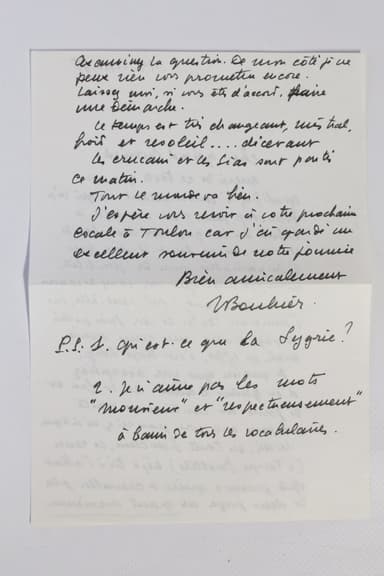 examiner la question. De mon côté je ne
peux rien vous promettre encore.
Laissez moi, si vous êtes d'accord, faire
une démarche.
Le temps est très changeant, mistral,
froid et resoleil.... décevant
Les et les Lias sont partis
ce matin.
Tout le monde va bien.
J'espère vous revoir à votre prochaine
escale à Toulon car j'ai gardé un
excellent souvenir de notre journée
Bien amicalement
P.S. 1. qu'est-ce que la Sygrie?
2. je n'aime pas les mots
"monsieur" et "respectueusement"
à bannir de tous les vocabulaires.